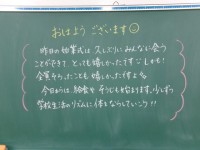 おはようございます
昨日の始業式は久しぶりにみんなに会う
ことができて とっても嬉しかったです。しかも!
全員そろったことも嬉しかったですよ
今日からは、給食や そうじも始まります。少しずつ
学校生活のリズムに体をならしていこう!!